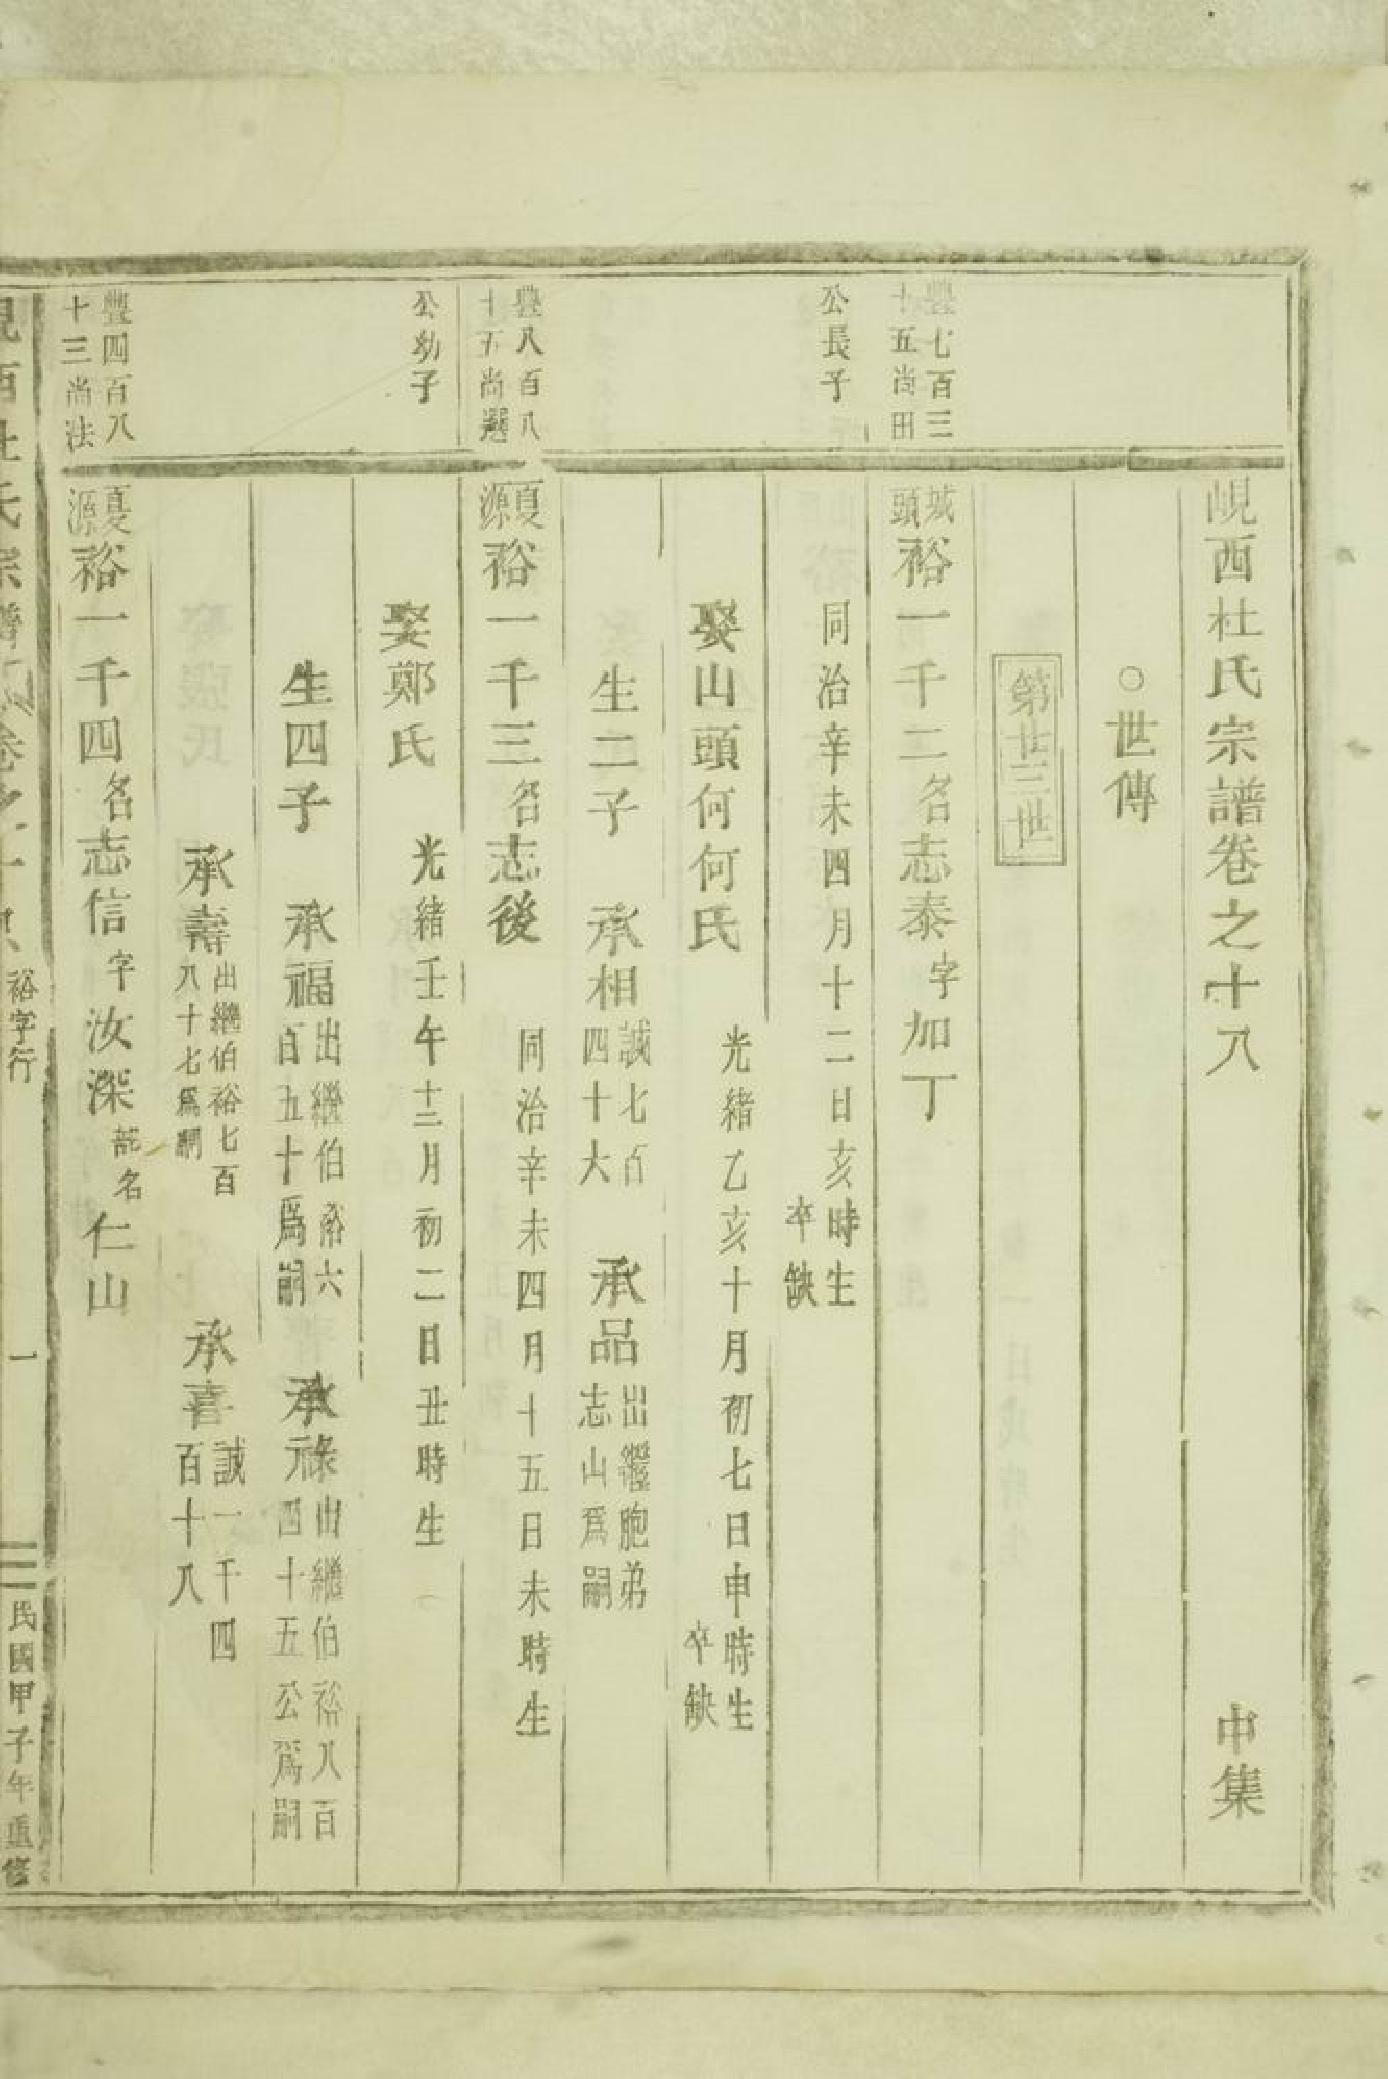 峴西杜氏宗譜卷之十八 中集
○世傳
第卅三世
豐七百三
十五尚田
城頭裕一千二名志泰字加丁
公長子
同治辛未四月十二日亥時生
卒缺
娶山頭何何氏 光緒乙亥十月初七日申時生
卒缺
生二子 承相誠七百四十六 承品出繼胞弟志山爲嗣
豐八百八
十五尚選
夏源裕一千三名志後 同治辛未四月十五日未時生
公幼子
娶鄭氏 光緒壬午十二月初二日丑時生
生四子 承福出繼伯裕六百五十爲嗣 承祿出繼伯裕八百四十五公爲嗣
承壽出繼伯裕七百八十七爲嗣 承喜誠一千四百十八
豐四百八
十三尚法
夏源裕一千四名志信字汝深譜名仁山
峴西杜氏宗譜 卷之十八 裕字行 一 民國甲子年重修